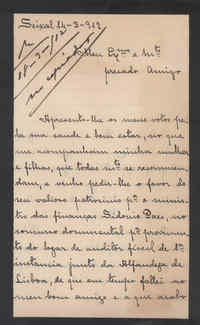 Seixal 14-3-912.
R
18-3-912
Meu Exmo e Mto
prezado Amigo
Apresento-lhe os meus votos pe-
la sua saude e bem estar, no que
me acompanham minha mulher
e filhas, que todas mto se recommen-
dam, e venho pedir-lhe o favor do
seu valioso patrocinio po o minis-
tro das finanças Sidonio Paes, no
concurso documental po provimen-
to do logar de auditor fiscal de 1ª
instancia junto da Alfandega de
Lisboa, de que em tempo fallei ao
meu bom amigo e a que acabo